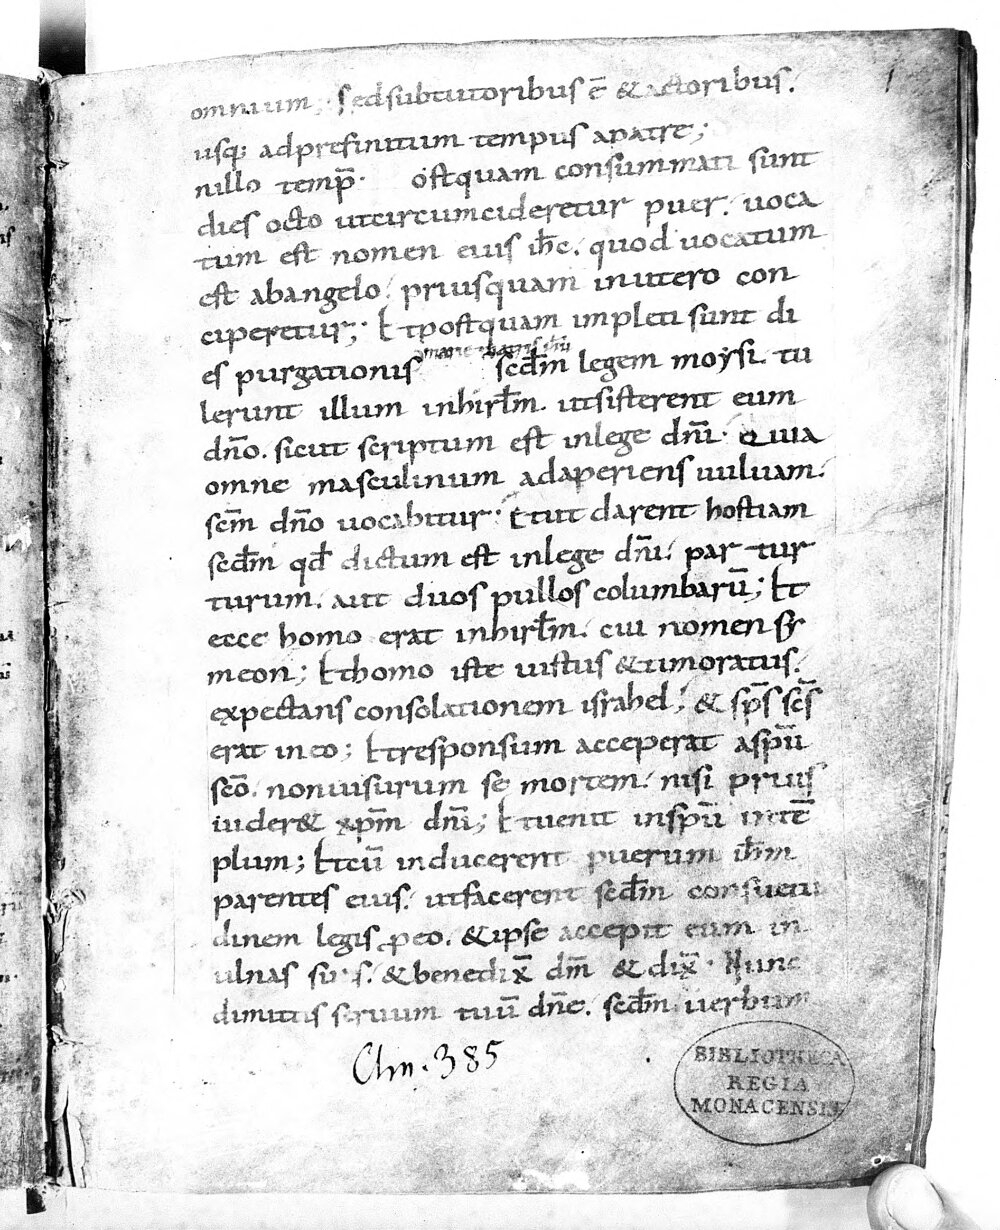 1
omnium; Sed sub tutoribus ē & actoribus.
usq; ad prefinitum tempus a patre;
n illo temp̄. ostquam consummati sunt
dies octo ut circumcideretur puer. uoca
tum est nomen eius ih̄c. quod uocatum
est ab angelo. priusquam in utero con
ciperetur; Et postquam impleti sunt di
marie matris ih̄u
es purgationis scd̄m legem moysi. tu
lerunt illum in hirl̄m. ut sisterent eum
dn̄o. sicut scriptum est in lege dn̄i. Quia
omne masculinum adaperiens uuluam.
sc̄m dn̄o uocabitur. Et ut darent hostiam
scd̄m qd̄ dictum est in lege dn̄i. par tur
turum. aut duos pullos columbarū; Et
ecce homo erat in hirl̄m. cui nomen sy
meon; Et homo iste uistus & timoratus.
expectans consolationem israhel. & sp̄s sc̄s
erat in eo; Et responsum acceperat a sp̄u
sc̄o. non uisurum se mortem. nisi prius
uider& xp̄m dn̄i; Et uenit in sp̄u in tē
plum; Et cū inducerent puerum ih̄m
parentes eius. ut facerent scd̄m consuetu
dinem legis p eo. & ipse accepit eum in
ulnas suas. & benedix̄ dm̄ & dix̄. Nunc
dimittis seruum tuū dn̄e. scd̄m uerbum
Clm. 385
BIBLIOTHECA
REGIA
MONACENSIS